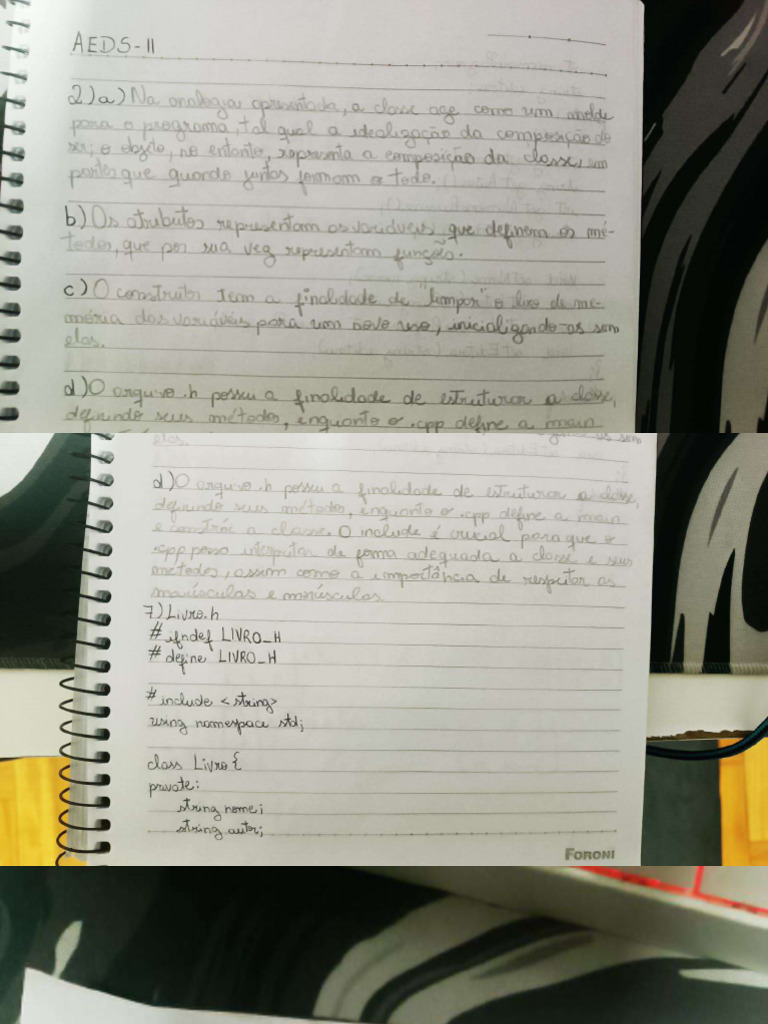 AEDS-II
2)a) Na analogia apresentada, a classe age como um molde
para o programa, tal qual a idealização da composição do
ser; o objeto, no entanto, representa a composição da classe, um
partes que quando juntas formam o todo.
b) Os atributos representam as variáveis que definem os mé-
todos, que por sua vez representam função.
c) O construtor tem a finalidade de "limpar" o lixo de me-
mória das variáveis para um novo uso, inicializando-as sem
elas.
d) O arquivo .h possui a finalidade de estruturar a classe,
definindo seus métodos, enquanto o .cpp define a main
elas.
d) O arquivo .h possui a finalidade de estruturar a classe,
definindo seus métodos, enquanto o .cpp define a main
e constrói a classe. O include é crucial para que o
.cpp possa interpretar de forma adequada a classe e seus
métodos, assim como a importância de respeitar as
maiúsculas e minúsculas.
7) Livro.h
# ifndef LIVRO_H
# define LIVRO_H
# include <string>
using namespace std;
class Livro {
private:
string nome;
string autor;
FORONI